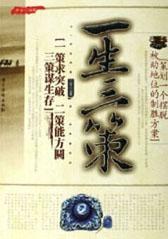 一生三策
策划一个摆脱
被动地位的制胜方案
一策求突破 二策能方圆
三策谋生存